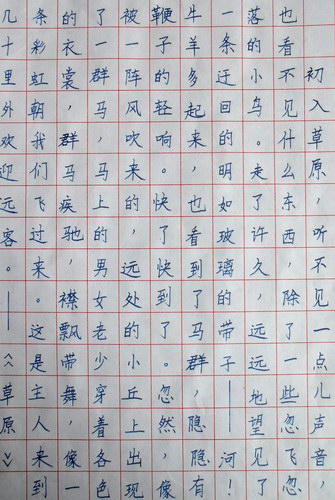 初入草原，听不见一点儿声音，
也看不见什么东西，除了一些忽飞忽
落的小鸟。走了许久，远远地望见了
一条迂回的明如玻璃的带子——河！
牛羊多起来，也看到了马群，隐隐有
鞭子的轻响。快了，快到了。忽然，像
被一阵风吹来的，远处的小丘上出现
了一群马，马上的男女老少穿着各色
的衣裳，群马疾驰，襟飘带舞，像一
条彩虹朝我们飞过来。这是主人来到
几十里外欢迎远客。——《草原》